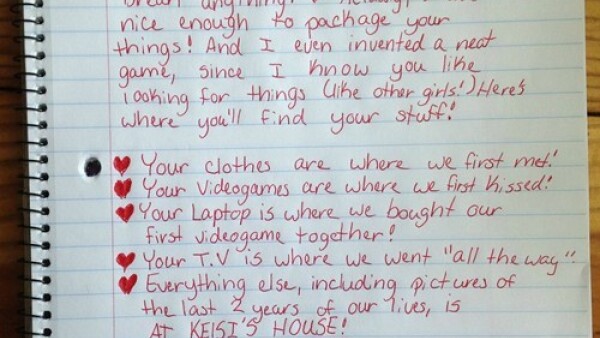 nice enough to package your
things! And I even invented a neat
game, since I know you like
looking for things (like other girls!) Here's
where you'll find your stuff!
Your clothes are where we first met!
Your Videogames are where we first kissed!
Your Laptop is where we bought our
first videogame together!
Your T.V is where we went "all the way"!
Everything else, including pictures of
the last 2 years of our lives, is
AT KEISI'S HOUSE!